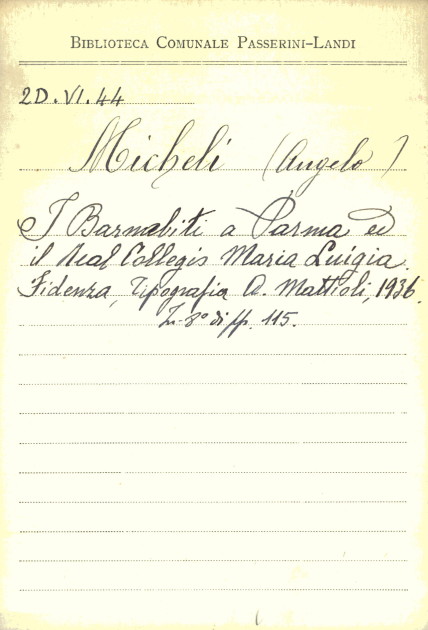 BIBLIOTECA COMUNALE PASSERINI-LANDI
2D.VI.44
Micheli (Angelo)
I Barnabiti a Parma ed
il Real Collegio Maria Luigia.
Fidenza, Tipografia A. Mattioli, 1936.
In-8° di pp. 115.